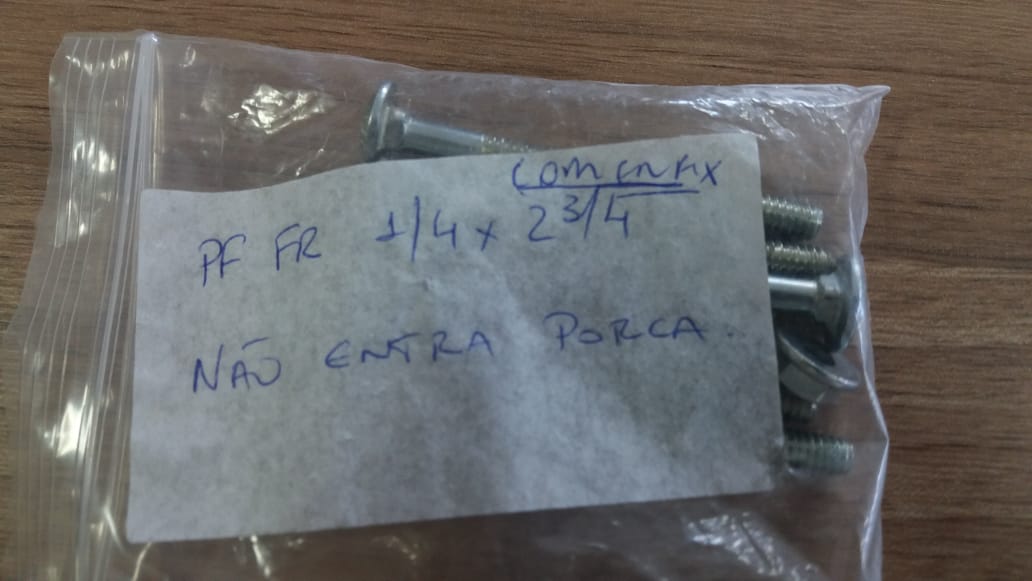 COMENFIX
PF FR 1/4 x 2 3/4
NÃO ENTRA PORCA.